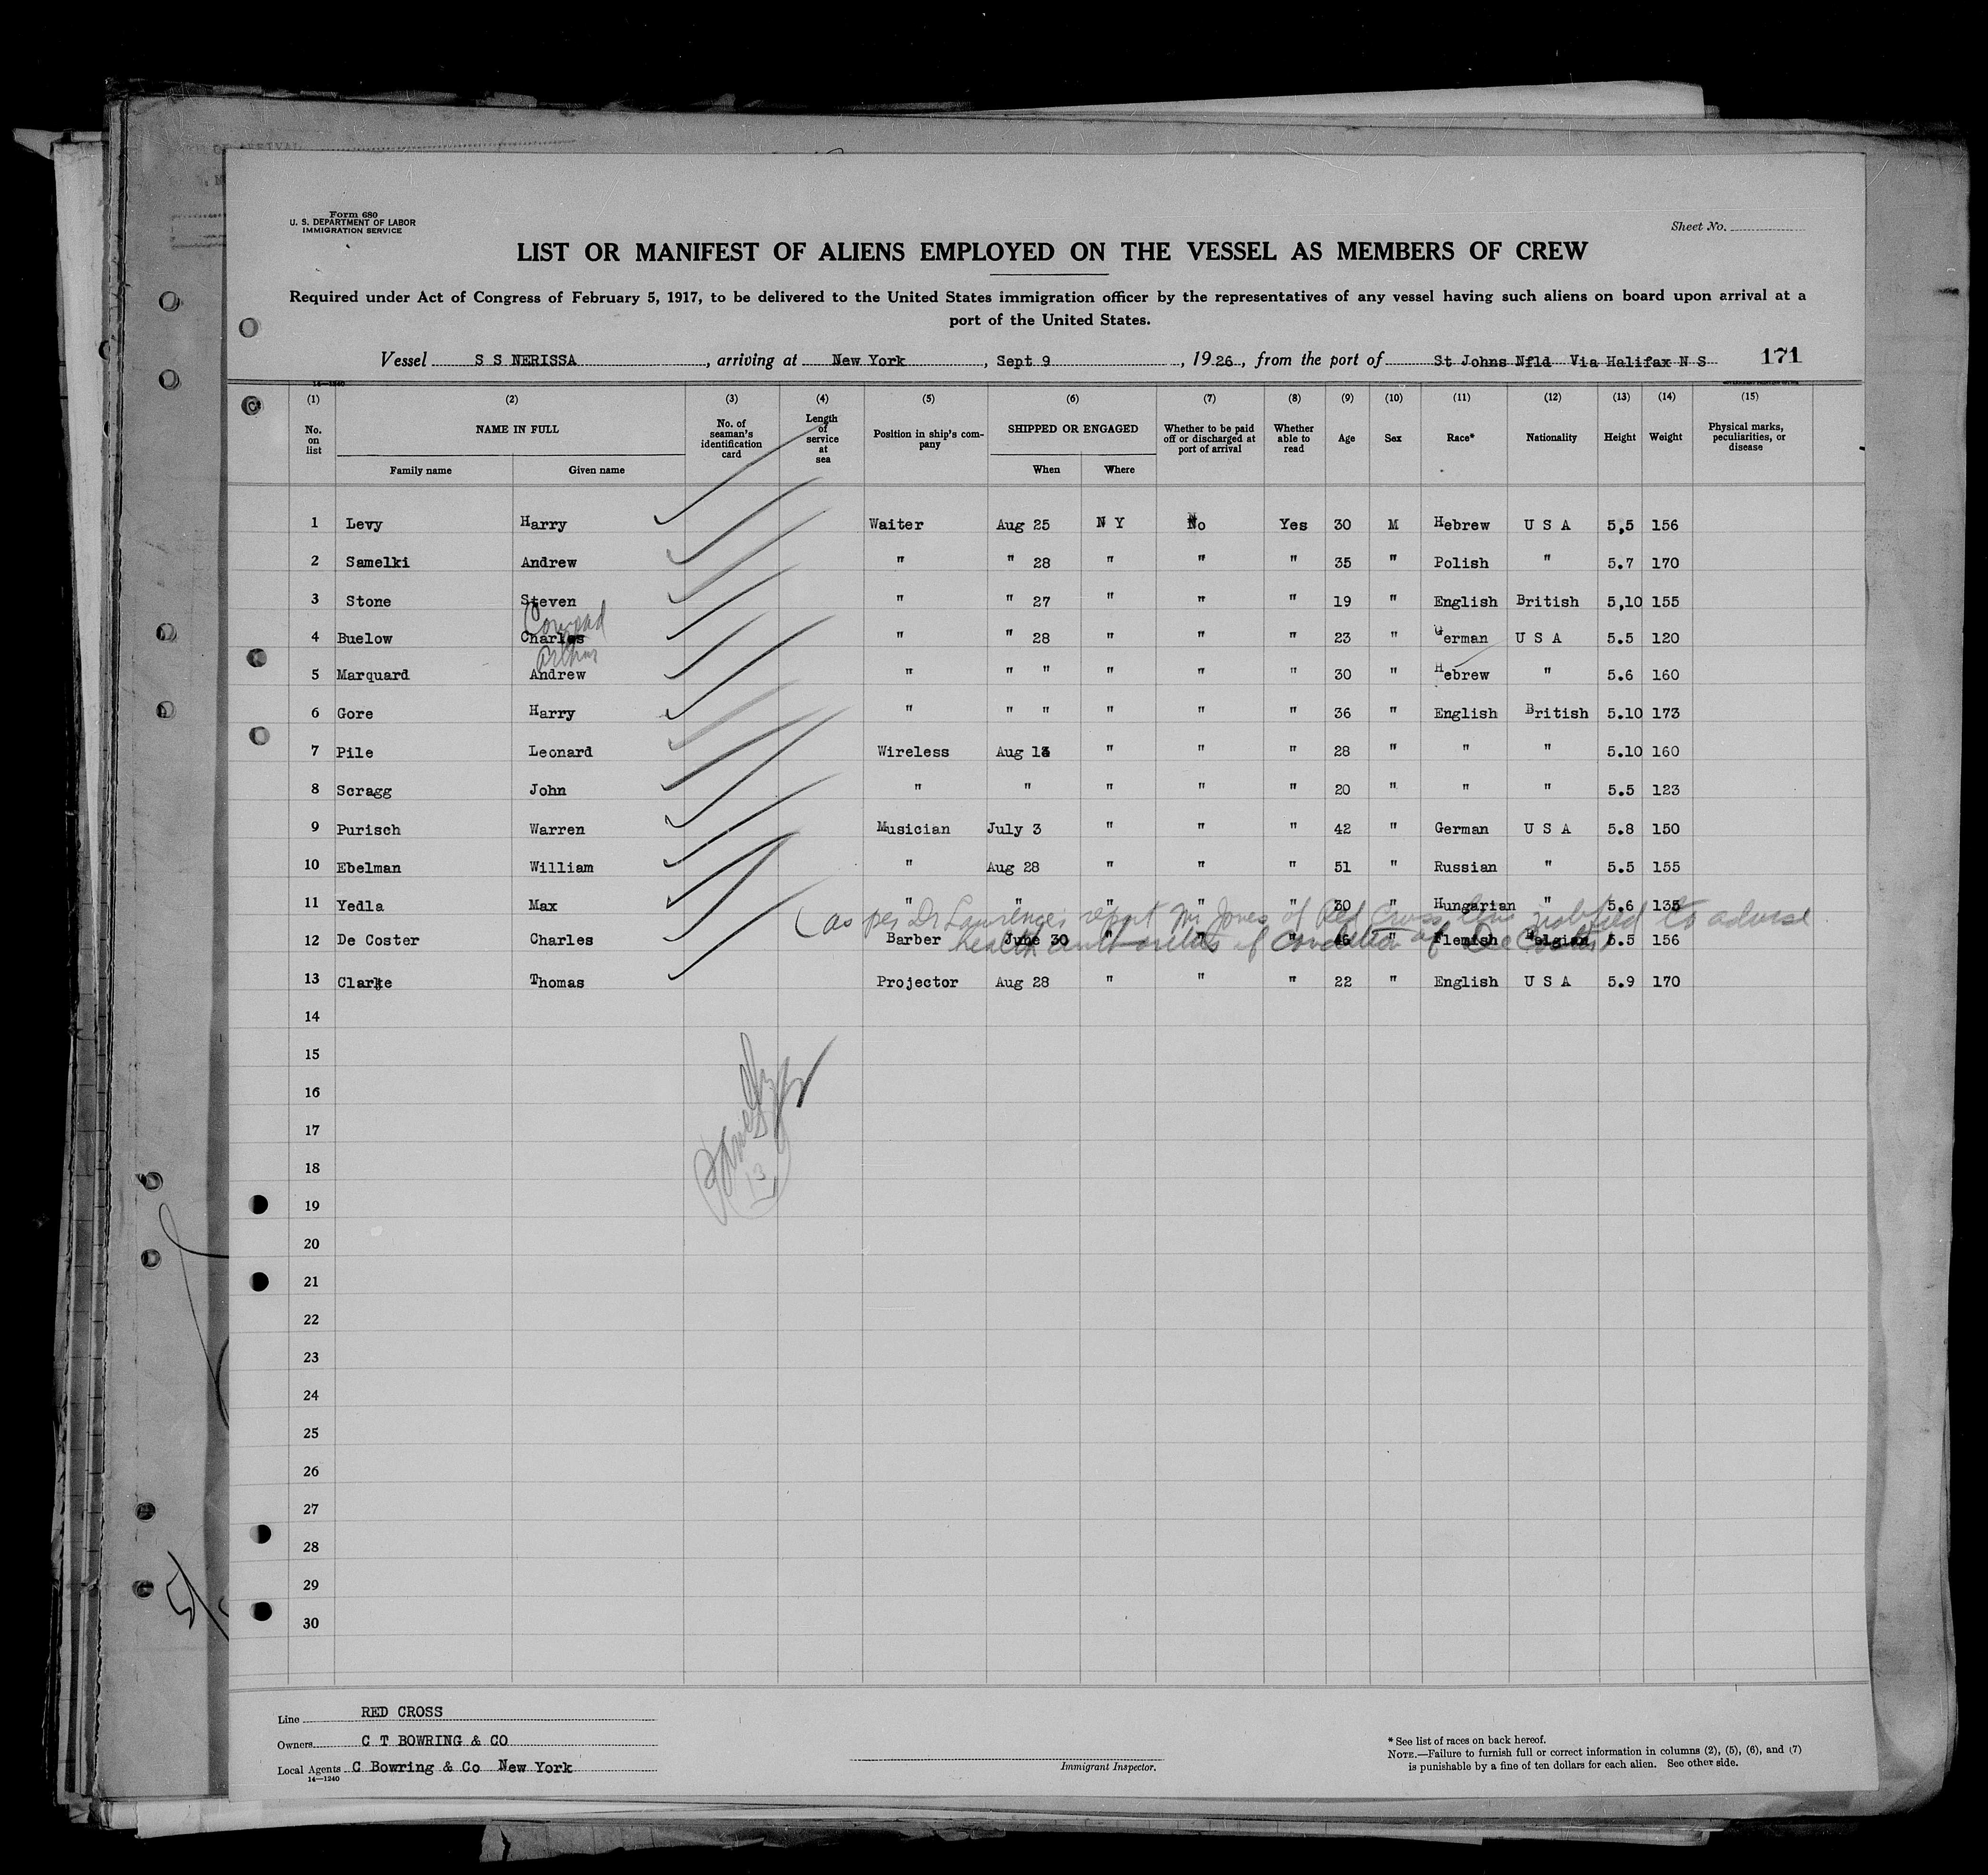 Form 680
U. S. DEPARTMENT OF LABOR
IMMIGRATION SERVICE
Sheet No.
LIST OR MANIFEST OF ALIENS EMPLOYED ON THE VESSEL AS MEMBERS OF CREW
Required under Act of Congress of February 5, 1917, to be delivered to the United States immigration officer by the representatives of any vessel having such aliens on board upon arrival at a
port of the United States.
Vessel S S NERISSA, arriving at New York, Sept 9, 1926, from the port of St Johns Nfld Via Halifax N S 171
14—1240
(1) (2) (3) (4) (5) (6) (7) (8) (9) (10) (11) (12) (13) (14) (15)
No. on list NAME IN FULL Family name Given name No. of seaman's identification card Length of service at sea Position in ship's company SHIPPED OR ENGAGED When Where Whether to be paid off or discharged at port of arrival Whether able to read Age Sex Race* Nationality Height Weight Physical marks, peculiarities, or disease
1 Levy Harry Waiter Aug 25 N Y No Yes 30 M Hebrew U S A 5,5 156
2 Samelki Andrew " " 28 " " " 35 " Polish " 5.7 170
3 Stone Steven " " 27 " " " 19 " English British 5,10 155
Conrad
4 Buelow Charles " " 28 " " " 23 " German U S A 5.5 120
Arthur
5 Marquard Andrew " " " " " " 30 " Hebrew " 5.6 160
6 Gore Harry " " " " " " 36 " English British 5.10 173
7 Pile Leonard Wireless Aug 13 " " " 28 " " " 5.10 160
8 Scragg John " " " " " 20 " " " 5.5 123
9 Purisch Warren Musician July 3 " " " 42 " German U S A 5.8 150
10 Ebelman William " Aug 28 " " " 51 " Russian " 5.5 155
11 Yedla Max " " " " " 30 " Hungarian " 5.6 135
(as per Dr Lawrence's report Mr Jones of Red Cross Line notified to advise
12 De Coster Charles Barber June 30 " " " 46 " Flemish Belgian 5.5 156
health authorities of condition of De Coster)
13 Clarke Thomas Projector Aug 28 " " " 22 " English U S A 5.9 170
14
15
16
17
18
13
19
20
21
22
23
24
25
26
27
28
29
30
Line RED CROSS
Owners C T BOWRING & CO
Local Agents C Bowring & Co New York
14—1240
Immigrant Inspector.
* See list of races on back hereof.
NOTE.—Failure to furnish full or correct information in columns (2), (5), (6), and (7)
is punishable by a fine of ten dollars for each alien. See other side.